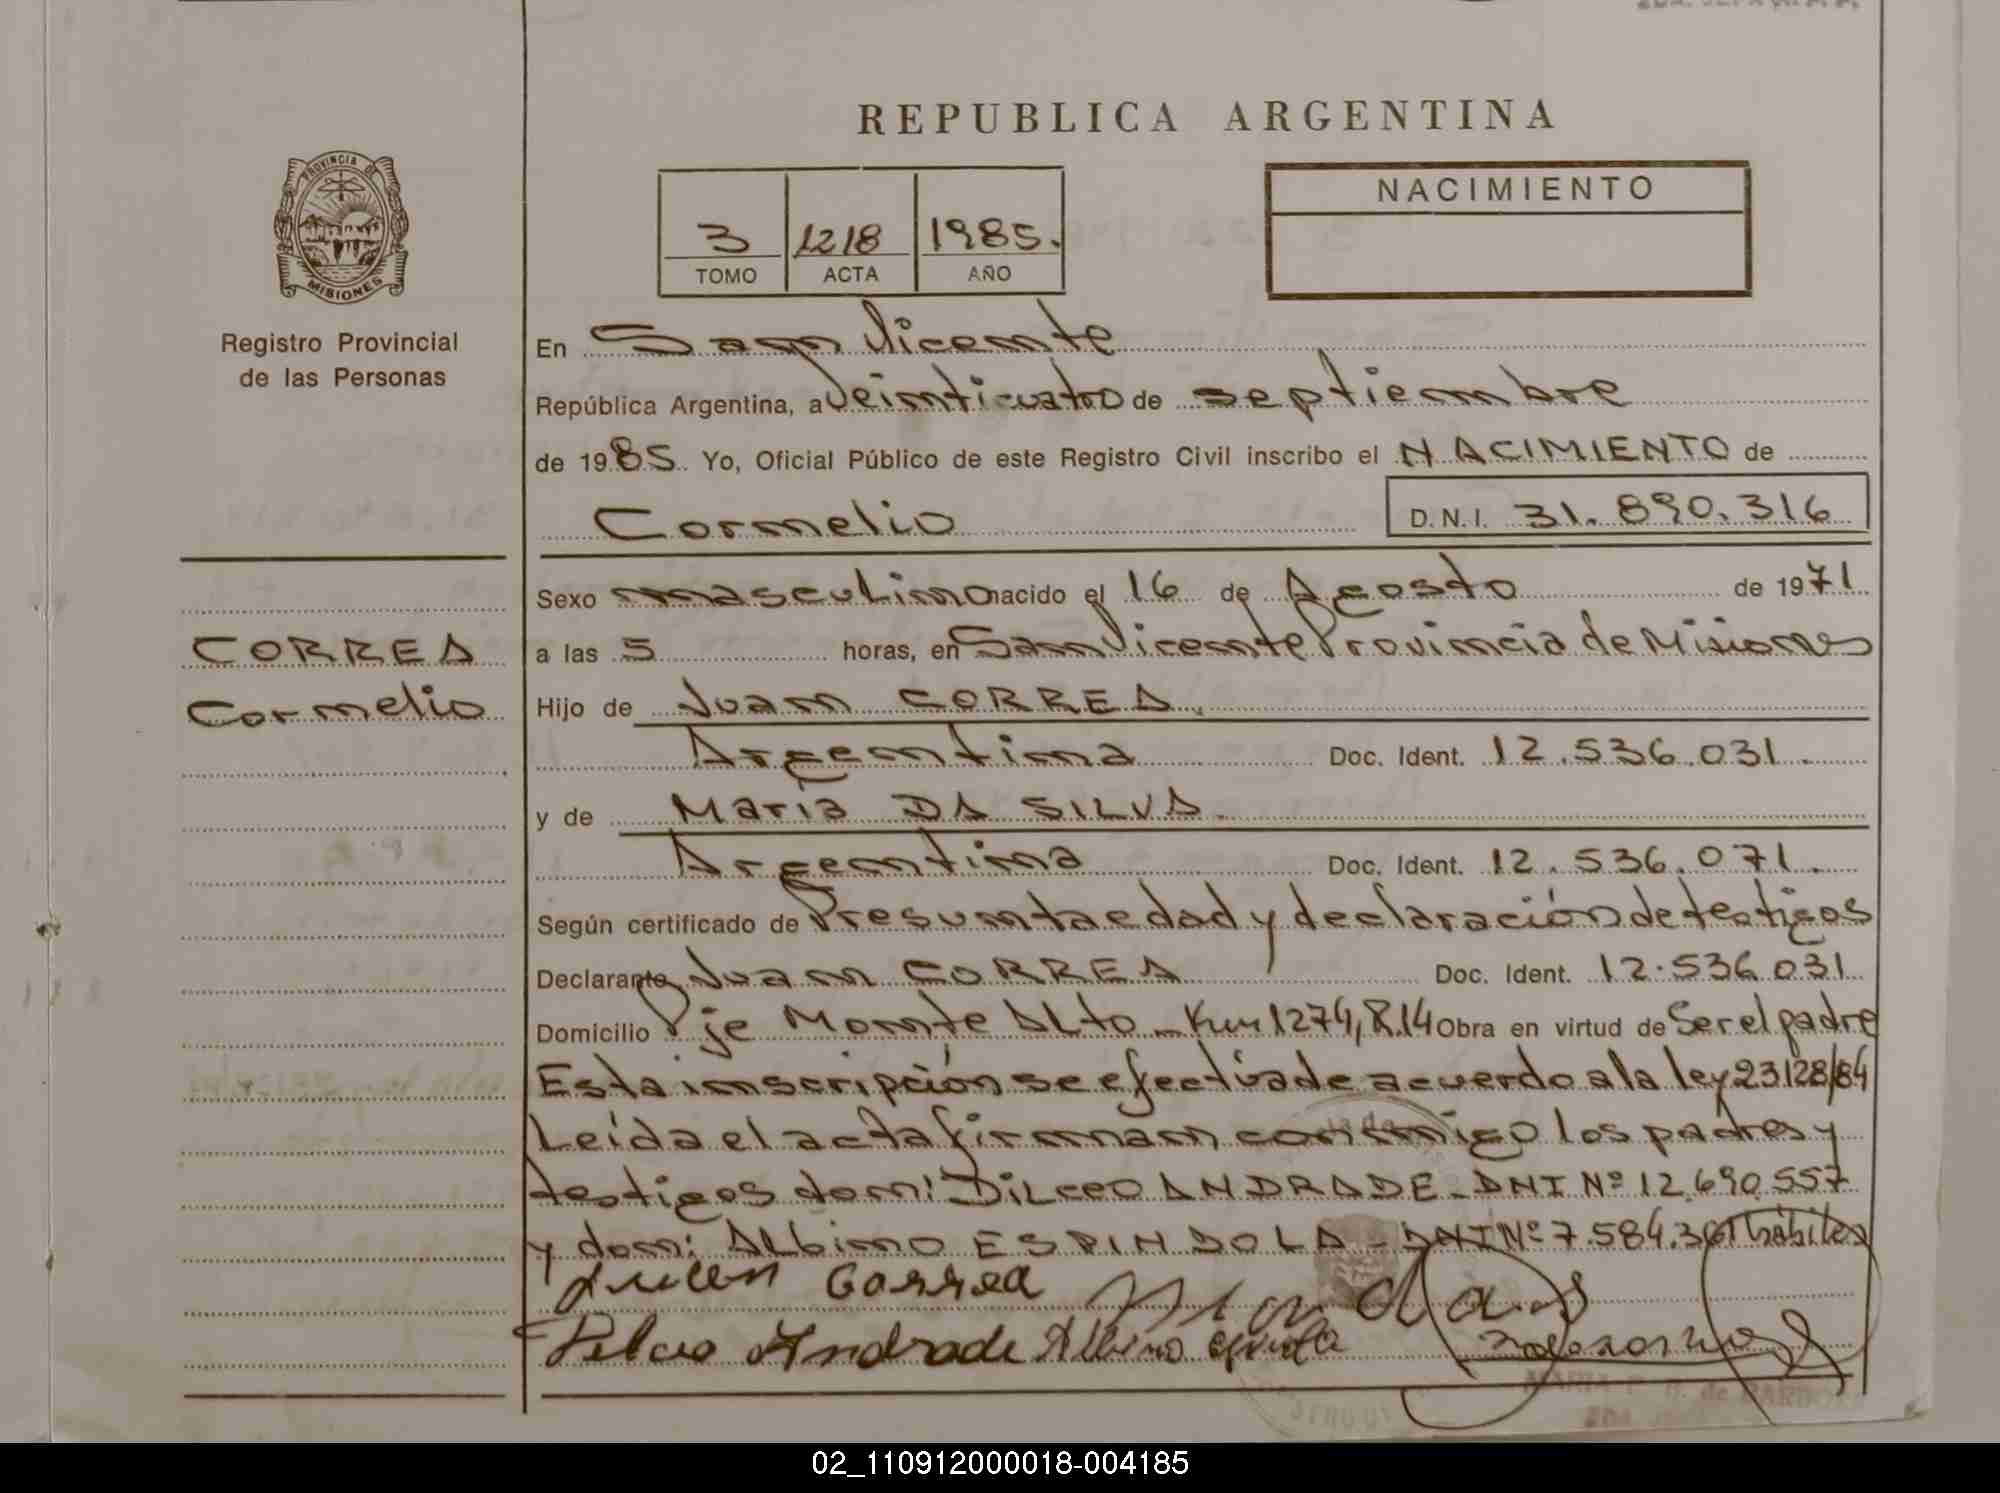 REPUBLICA ARGENTINA
PROVINCIA DE
MISIONES
Registro Provincial
de las Personas
3 1218 1985.
TOMO ACTA AÑO
NACIMIENTO
En San Vicente
República Argentina, a Veinticuatro de septiembre
de 1985. Yo, Oficial Público de este Registro Civil inscribo el NACIMIENTO de
Cornelio D.N.I. 31.890.316
CORREA
Cornelio
Sexo masculino nacido el 16 de Agosto de 1971
a las 5 horas, en San Vicente Provincia de Misiones
Hijo de Juan CORREA.
Argentina Doc. Ident. 12.536.031.
y de María DA SILVA.
Argentina Doc. Ident. 12.536.071.
Según certificado de Presunta edad y declaración de testigos
Declarante Juan CORREA Doc. Ident. 12.536.031
Domicilio Pje Monte Alto - Km 1274, R.14 Obra en virtud de Ser el padre
Esta inscripción se efectúa de acuerdo a la ley 23128/84
Leída el acta firman conmigo los padres y
testigos don: Dilceo ANDRADE - DNI Nº 12.690.557
y don: Albino ESPINDOLA - DNI Nº 7.584.361 hábiles
Juan Correa
Andrade Albino
02_110912000018-004185